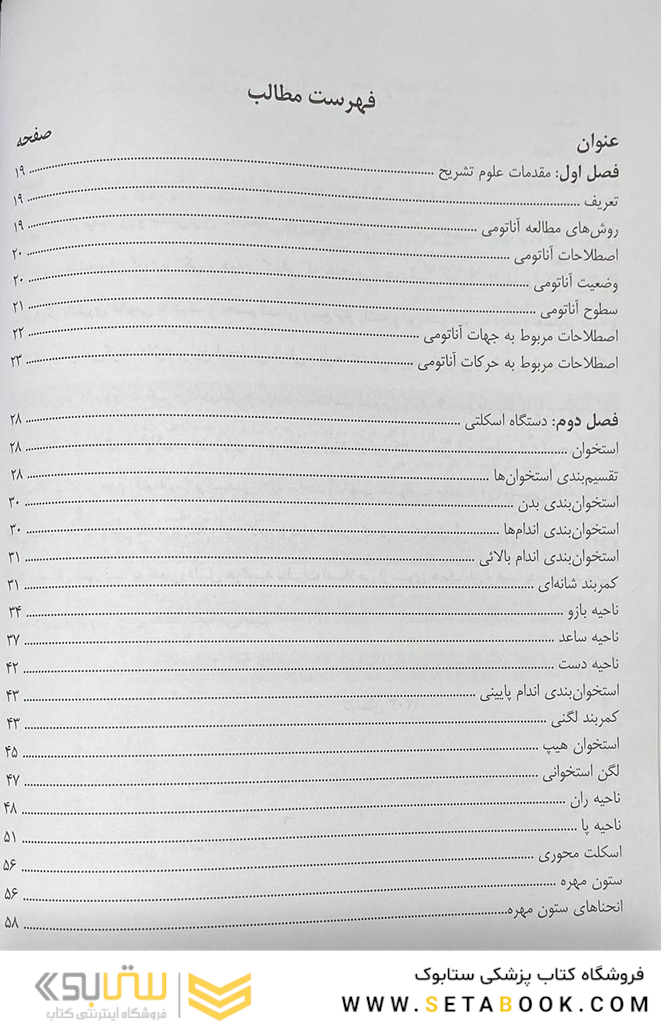 فهرست مطالب
عنوان صفحه
فصل اول: مقدمات علوم تشریح ۱۹
تعریف ۱۹
روش‌های مطالعه آناتومی ۱۹
اصطلاحات آناتومی ۲۰
وضعیت آناتومی ۲۰
سطوح آناتومی ۲۱
اصطلاحات مربوط به جهات آناتومی ۲۲
اصطلاحات مربوط به حرکات آناتومی ۲۳
فصل دوم: دستگاه اسکلتی ۲۸
استخوان ۲۸
تقسیم‌بندی استخوان‌ها ۲۸
استخوان‌بندی بدن ۳۰
استخوان‌بندی اندام‌ها ۳۰
استخوان‌بندی اندام بالائی ۳۱
کمربند شانه‌ای ۳۱
ناحیه بازو ۳۴
ناحیه ساعد ۳۷
ناحیه دست ۴۲
استخوان‌بندی اندام پایینی ۴۳
کمربند لگنی ۴۳
استخوان هیپ ۴۵
لگن استخوانی ۴۷
ناحیه ران ۴۸
ناحیه پا ۵۱
اسکلت محوری ۵۶
ستون مهره ۵۶
انحناهای ستون مهره ۵۸
فروشگاه کتاب پزشکی ستابوک
WWW.SETABOOK.COM
ستابوک
فروشگاه اینترنتی کتاب